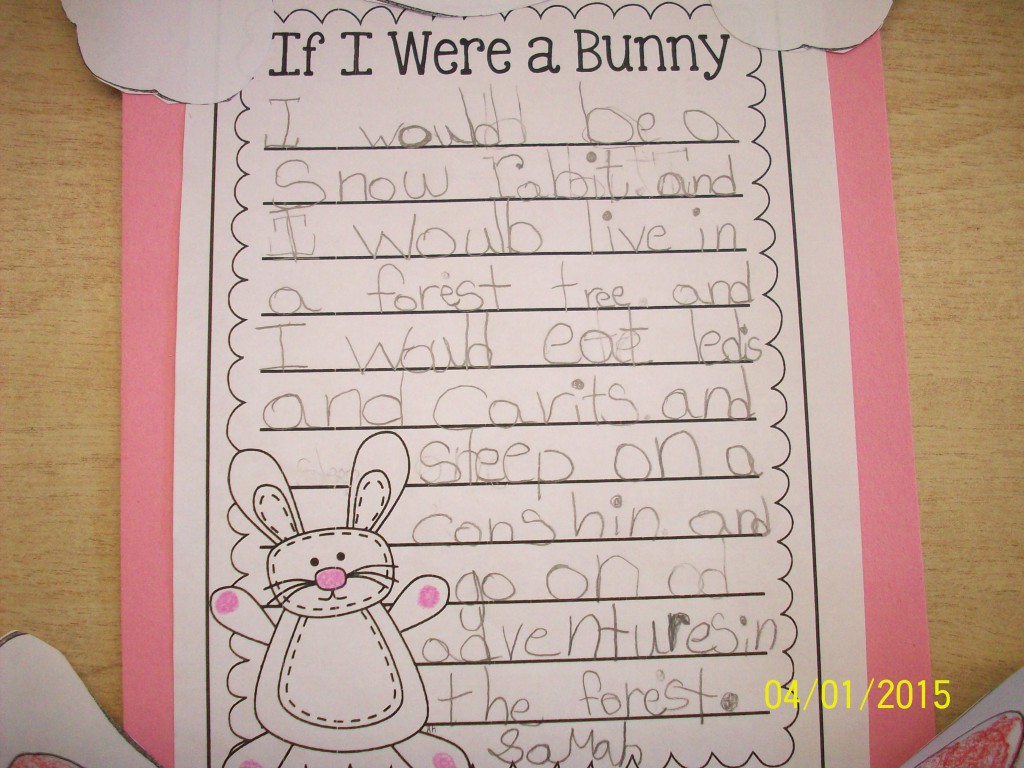 If I Were a Bunny
I would be a
Snow rabbit. and
I woulb live in
a forest tree. and
I would eat leds
and Carits. and
sleep on a
conshin. and
go on ad
adventures in
the forest.
Samah
04/01/2015